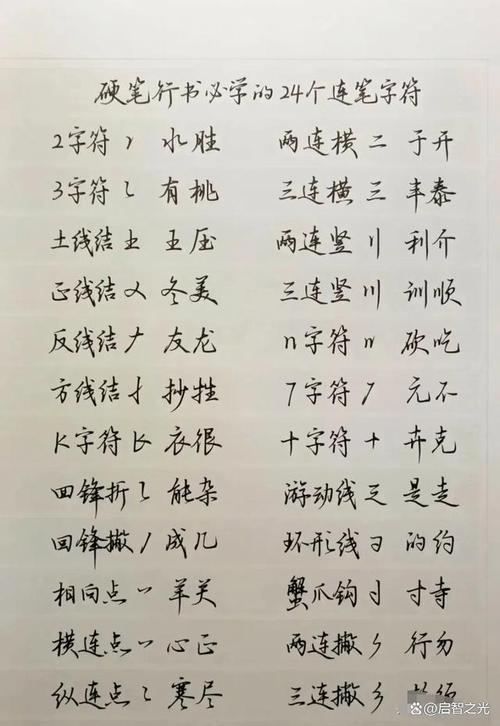 硬笔行书必学的24个连笔字符
2字符 冫 水胜 两连横 二 于开
3字符 ㇊ 有桃 三连横 三 丰泰
土线结 土 王压 两连竖 刂 利介
正线结 㐅 冬美 三连竖 川 训顺
反线结 ナ 友龙 n字符 n 砍吃
方线结 扌 抄牲 7字符 7 元不
K字符 K 衣很 十字符 十 卉克
回锋折 能杂 游动线 是走
回锋撇 成几 环形线 的约
相向点 羊关 蟹爪钩 寸寺
横连点 心正 两连撇 行勿
纵连点 寒尽 三连撇
启智之光